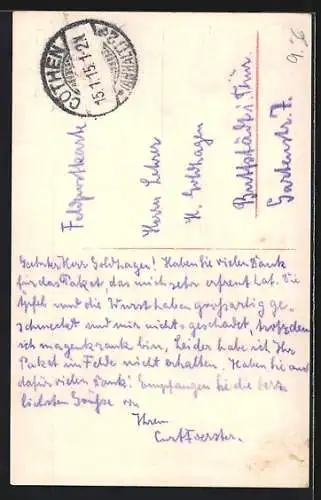 CÖTHEN
(ANHALT) 2
15.1.15.1-2N
9.76
Feldpostkarte
Herrn Lehrer
H. Goldhagen
Buttstädt i/Thür.
Gartenstr. 7.
Geehrter Herr Goldhagen! Haben Sie vielen Dank
für das Paket das mich sehr erfreut hat. Die
Äpfel und die Wurst haben großartig ge-
schmeckt und mir nichts geschadet, trotzdem
ich magenkrank bin. Leider habe ich Ihr
Paket im Felde nicht erhalten. Haben Sie auch
dafür vielen Dank! Empfangen Sie die herz-
lichsten Grüße von
Ihrem
Curt Foerster.